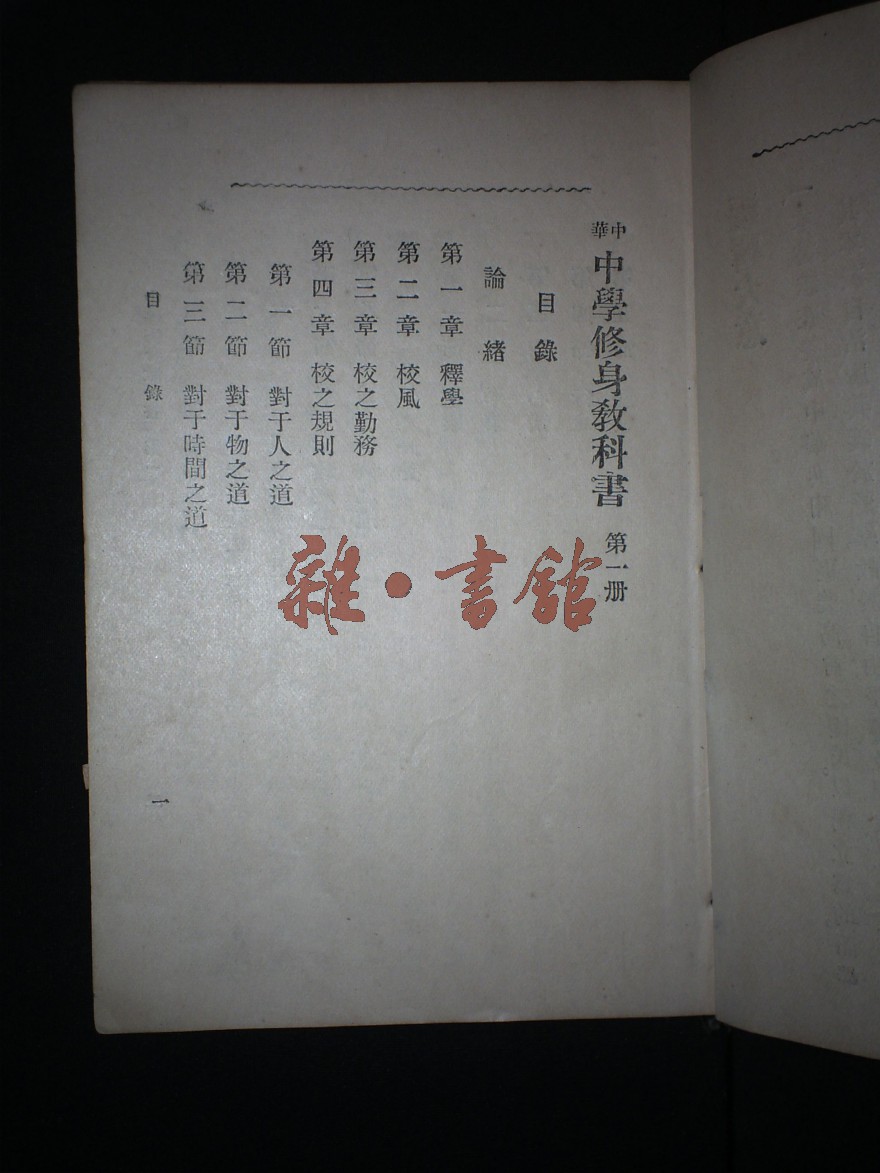 中華 中學修身教科書 第一册
目錄
論緒
第一章 釋學
第二章 校風
第三章 校之勤務
第四章 校之規則
第一節 對于人之道
第二節 對于物之道
第三節 對于時間之道
目錄 一
雜·書館